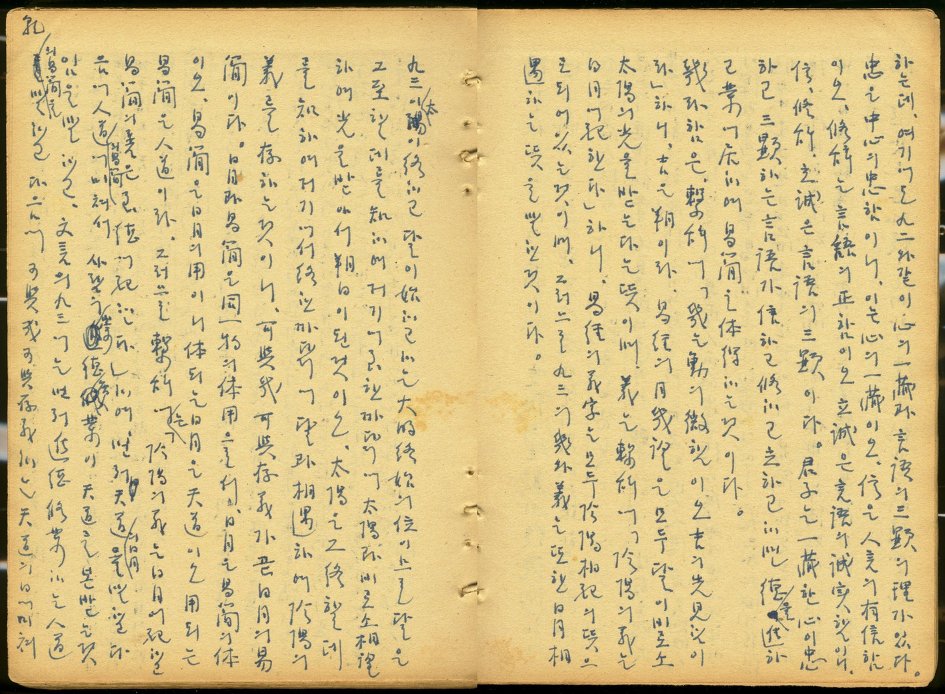 하는데, 여기에도 九二와같이 心의 一藏과 言語의 三顯의 理가 있다.
忠은 中心의 忠함이니, 이는 心의 一藏이오, 信은 人言의 有信함
이오, 修辭는 言語의 正함이오 立誠은 言語의 誠實함이니,
信, 修辭, 立誠은 言語의 三顯이다. 君子는 一藏한 心이 忠
하고, 三顯하는 言語가 信하고 修하고 立하고하면 德을 進하
고 業에 居하여 易簡을 体得하는것이다.
幾라함은, 繫辭에「幾는 動의 微함이오 吉의 先見함이
라」하니, 吉은 朔이라. 易経의 月幾望은 모두 달이 비로소
太陽의 光을 받는다는 뜻이며. 義는 繫辭에「陰陽의 義는
日月에 配한다」하니, 易経의 義字는 모두 陰陽相配의 뜻으
로 되어있는것이며, 그러므로 九三의 幾와 義는 또한 日月相
遇하는 뜻을 말한것이다.
九三이 太陽이 終하고 달이 始하고 하는 大明終始의 位이므로 달은
그 至할데를 知하여 저기에 한까닭에 太陽과 비로소 相望
하여 光을 받아서 朔日이 된것이오, 太陽은 그 終할데
를 知하여 저기에서 終한까닭에 달과 相遇하여 陰陽의
義를 存하는것이니, 可與幾 可與存義가 곧 日月의 易
簡이다. 日月과 易簡은 同一物의 体用으로서, 日月은 易簡의 体
이오, 易簡은 日月의 用이니 体되는 日月은 天道이오 用되는
易簡은 人道이라. 그러므로 繫辭에는「陰陽의 義는 日月에 配하고
易簡의 善은 至德에 配한다」하여, 먼저 天道의日月을 말하고 다
음에 人道의易簡에 미쳐서 德 業이 天道를 본받는것
임을 말하고, 文言의 九三에는 먼저 進德修業하는 人道
의易簡을 말하고 다음에 可與幾 可與存義하는 天道의 日月에 미쳐